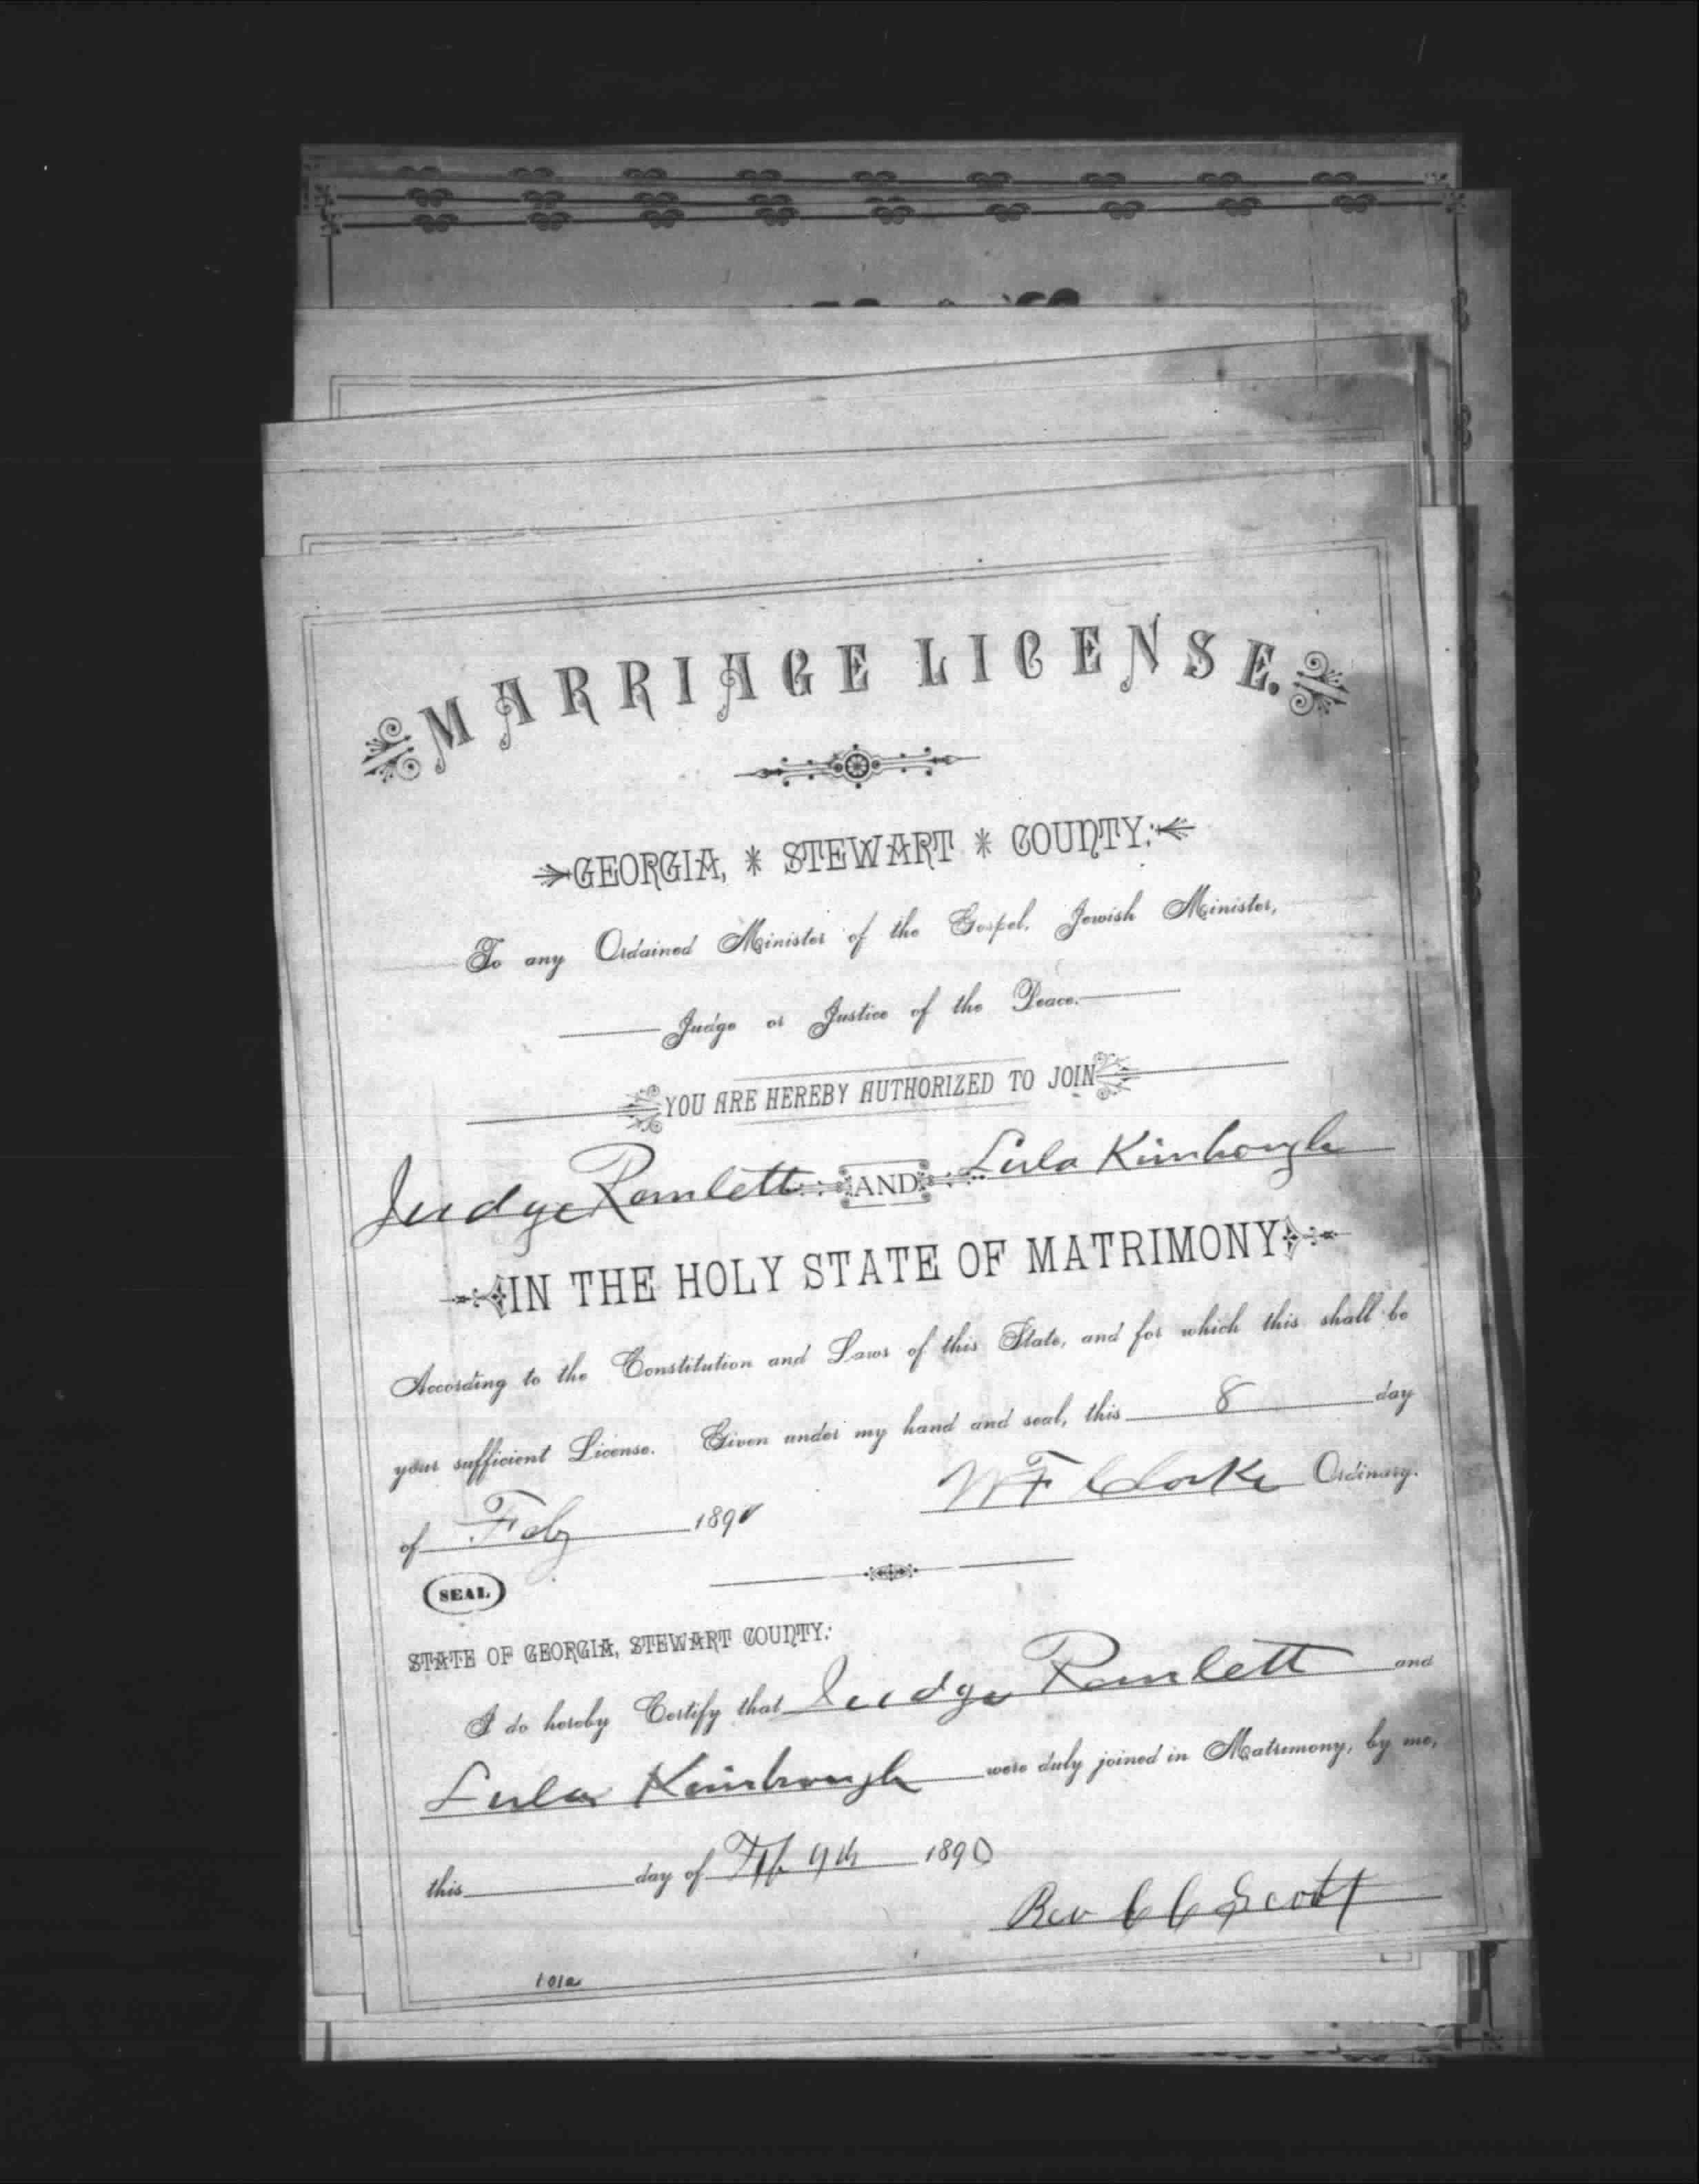 MARRIAGE LICENSE.
GEORGIA, * STEWART * COUNTY:
To any Ordained Minister of the Gospel, Jewish Minister,
Judge or Justice of the Peace.
YOU ARE HEREBY AUTHORIZED TO JOIN
Judge Ramlett AND Lula Kimbrough
IN THE HOLY STATE OF MATRIMONY
According to the Constitution and Laws of this State, and for which this shall be
your sufficient License. Given under my hand and seal, this 8 day
of Feby 189
W F Clarke Ordinary.
SEAL
STATE OF GEORGIA, STEWART COUNTY:
I do hereby Certify that Judge Ramlett and
Lula Kimbrough were duly joined in Matrimony, by me,
this day of 9th 1890
Rev C C Scott